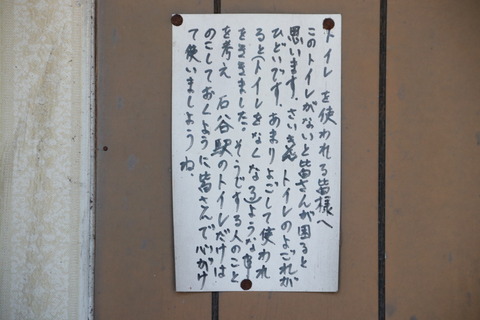 トイレを使われる皆様へ
このトイレがないと皆さんが困ると
思います。さいきんトイレのよごれが
ひどいです。あまりよごして使われ
ると(トイレをなくなる)ような
をききました。そうじする人のこと
を考え 石谷駅のトイレだけは
のこしておくように皆さんで心がけ
て使いましょうね、